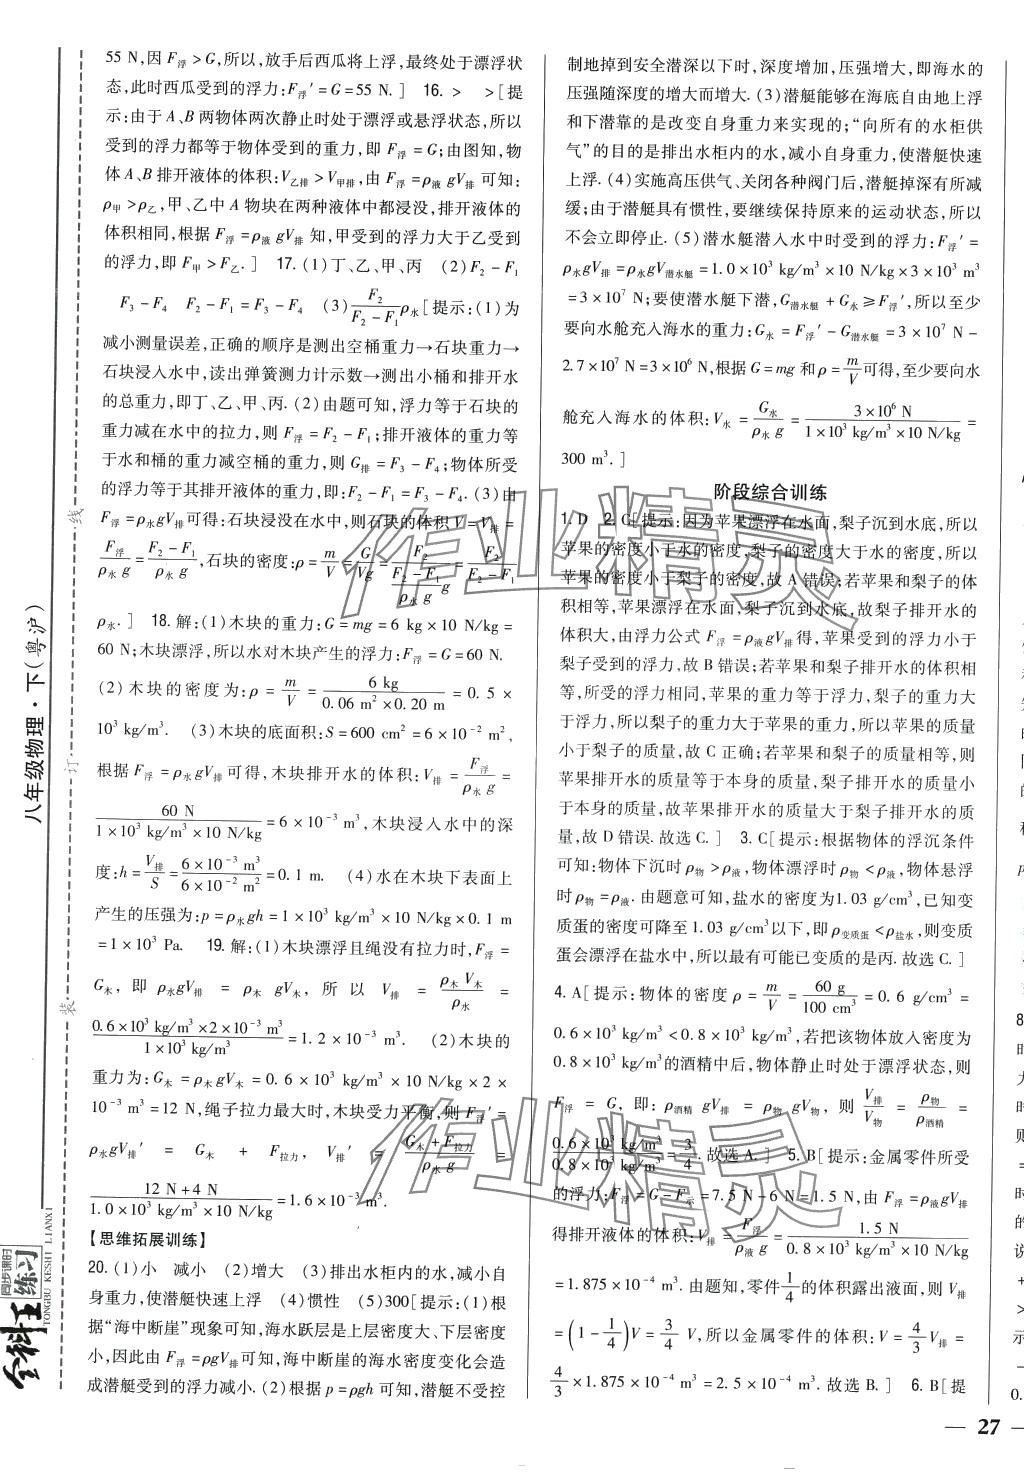 55 N,因 F浮＞G,所以,放手后西瓜将上浮,最终处于漂浮状
态,此时西瓜受到的浮力:F浮′=G=55 N.] 16.＞ ＞[提
示:由于A、B两物体两次静止时处于漂浮或悬浮状态,所以
受到的浮力都等于物体受到的重力,即 F浮=G;由图知,物
体A、B排开液体的体积:V乙排＞V甲排,由 F浮=ρ液gV排可知:
ρ甲＞ρ乙,甲、乙中A物块在两种液体中都浸没,排开液体的
体积相同,根据 F浮=ρ液gV排知,甲受到的浮力大于乙受到
的浮力,即 F甲＞F乙.] 17.(1)丁、乙、甲、丙 (2)F2-F1
F3-F4 F2-F1=F3-F4 (3)F2/(F2-F1)ρ水[提示:(1)为
减小测量误差,正确的顺序是测出空桶重力→石块重力→
石块浸入水中,读出弹簧测力计示数→测出小桶和排开水
的总重力,即丁、乙、甲、丙.(2)由题可知,浮力等于石块的
重力减在水中的拉力,则 F浮=F2-F1;排开液体的重力等
于水和桶的重力减空桶的重力,则 G排=F3-F4;物体所受
的浮力等于其排开液体的重力,即:F2-F1=F3-F4.(3)由
F浮=ρ水gV排可得:石块浸没在水中,则石块的体积 V=V排=
F浮/(ρ水g)=(F2-F1)/(ρ水g),石块的密度:ρ=m/V=G/(Vg)=F2/((F2-F1)/(ρ水g)·g)=F2/(F2-F1)
ρ水.] 18.解:(1)木块的重力:G=mg=6 kg×10 N/kg=
60 N;木块漂浮,所以水对木块产生的浮力:F浮=G=60 N.
(2)木块的密度为:ρ=m/V=6 kg/(0.06 m²×0.20 m)=0.5×
10³ kg/m³ (3)木块的底面积:S=600 cm²=6×10⁻² m²,
根据 F浮=ρ水gV排可得,木块排开水的体积:V排=F浮/(ρ水g)=
60 N/(1×10³ kg/m³×10 N/kg)=6×10⁻³ m³,木块浸入水中的深
度:h=V排/S=(6×10⁻³ m³)/(6×10⁻² m²)=0.1 m. (4)水在木块下表面上
产生的压强为:p=ρ水gh=1×10³ kg/m³×10 N/kg×0.1 m
=1×10³ Pa. 19.解:(1)木块漂浮且绳没有拉力时,F浮=
G木,即 ρ水gV排=ρ木gV木,所以V排=ρ木V木/ρ水=
(0.6×10³ kg/m³×2×10⁻³ m³)/(1×10³ kg/m³)=1.2×10⁻³ m³. (2)木块的
重力为:G木=ρ木gV木=0.6×10³ kg/m³×10 N/kg×2×
10⁻³ m³=12 N,绳子拉力最大时,木块受力平衡,则 F浮′=
ρ水gV排′=G木+F拉力,V排′=(G木+F拉力)/(ρ水g)=
(12 N+4 N)/(1.0×10³ kg/m³×10 N/kg)=1.6×10⁻³ m³.
【思维拓展训练】
20.(1)小 减小 (2)增大 (3)排出水柜内的水,减小自
身重力,使潜艇快速上浮 (4)惯性 (5)300[提示:(1)根
据“海中断崖”现象可知,海水跃层是上层密度大、下层密度
小,因此由 F浮=ρgV排可知,海中断崖的海水密度变化会造
成潜艇受到的浮力减小.(2)根据 p=ρgh 可知,潜艇不受控
制地掉到安全潜深以下时,深度增加,压强增大,即海水的
压强随深度的增大而增大.(3)潜艇能够在海底自由地上浮
和下潜靠的是改变自身重力来实现的;“向所有的水柜供
气”的目的是排出水柜内的水,减小自身重力,使潜艇快速
上浮.(4)实施高压供气、关闭各种阀门后,潜艇掉深有所减
缓;由于潜艇具有惯性,要继续保持原来的运动状态,所以
不会立即停止.(5)潜水艇潜入水中时受到的浮力:F浮′=
ρ水gV排=ρ水gV潜水艇=1.0×10³ kg/m³×10 N/kg×3×10³ m³
=3×10⁷ N;要使潜水艇下潜,G潜水艇+G水≥F浮′,所以至少
要向水舱充入海水的重力:G水=F浮′-G潜水艇=3×10⁷ N-
2.7×10⁷ N=3×10⁶ N,根据 G=mg 和 ρ=m/V可得,至少要向水
舱充入海水的体积:V水=G水/(ρ水g)=(3×10⁶ N)/(1×10³ kg/m³×10 N/kg)=
300 m³.]
阶段综合训练
1.D 2.C[提示:因为苹果漂浮在水面,梨子沉到水底,所以
苹果的密度小于水的密度,梨子的密度大于水的密度,所以
苹果的密度小于梨子的密度,故A错误;若苹果和梨子的体
积相等,苹果漂浮在水面,梨子沉到水底,故梨子排开水的
体积大,由浮力公式 F浮=ρ液gV排得,苹果受到的浮力小于
梨子受到的浮力,故B错误;若苹果和梨子排开水的体积相
等,所受的浮力相同,苹果的重力等于浮力,梨子的重力大
于浮力,所以梨子的重力大于苹果的重力,所以苹果的质量
小于梨子的质量,故C正确;若苹果和梨子的质量相等,则
苹果排开水的质量等于本身的质量,梨子排开水的质量小
于本身的质量,故苹果排开水的质量大于梨子排开水的质
量,故D错误.故选C.] 3.C[提示:根据物体的浮沉条件
可知:物体下沉时ρ物＞ρ液,物体漂浮时ρ物＜ρ液,物体悬浮
时ρ物=ρ液.由题意可知,盐水的密度为1.03 g/cm³,已知变
质蛋的密度可降至1.03 g/cm³以下,即ρ变质蛋＜ρ盐水,则变质
蛋会漂浮在盐水中,所以最有可能已变质的是丙.故选C.]
4.A[提示:物体的密度 ρ=m/V=60 g/100 cm³=0.6 g/cm³=
0.6×10³ kg/m³＜0.8×10³ kg/m³,若把该物体放入密度为
0.8×10³ kg/m³的酒精中后,物体静止时处于漂浮状态,则
F浮=G,即:ρ酒精gV排=ρ物gV物,则V排/V物=ρ物/ρ酒精=
(0.6×10³ kg/m³)/(0.8×10³ kg/m³)=3/4.故选A.] 5.B[提示:金属零件所受
的浮力:F浮=G-F示=7.5 N-6 N=1.5 N,由 F浮=ρ液gV排
得排开液体的体积:V排=F浮/(ρ液g)=1.5 N/(0.8×10³ kg/m³×10 N/kg)
=1.875×10⁻⁴ m³;由题知,零件1/4的体积露出液面,则 V排
=(1-1/4)V=3/4V,所以金属零件的体积:V=4/3V排=
4/3×1.875×10⁻⁴ m³=2.5×10⁻⁴ m³.故选B.] 6.B[提
— 27 —
八年级物理·下(粤沪)
装 订 线
全科王
同步课时
练习
TONGBU KESHI LIANXI
作业精灵
作业精灵